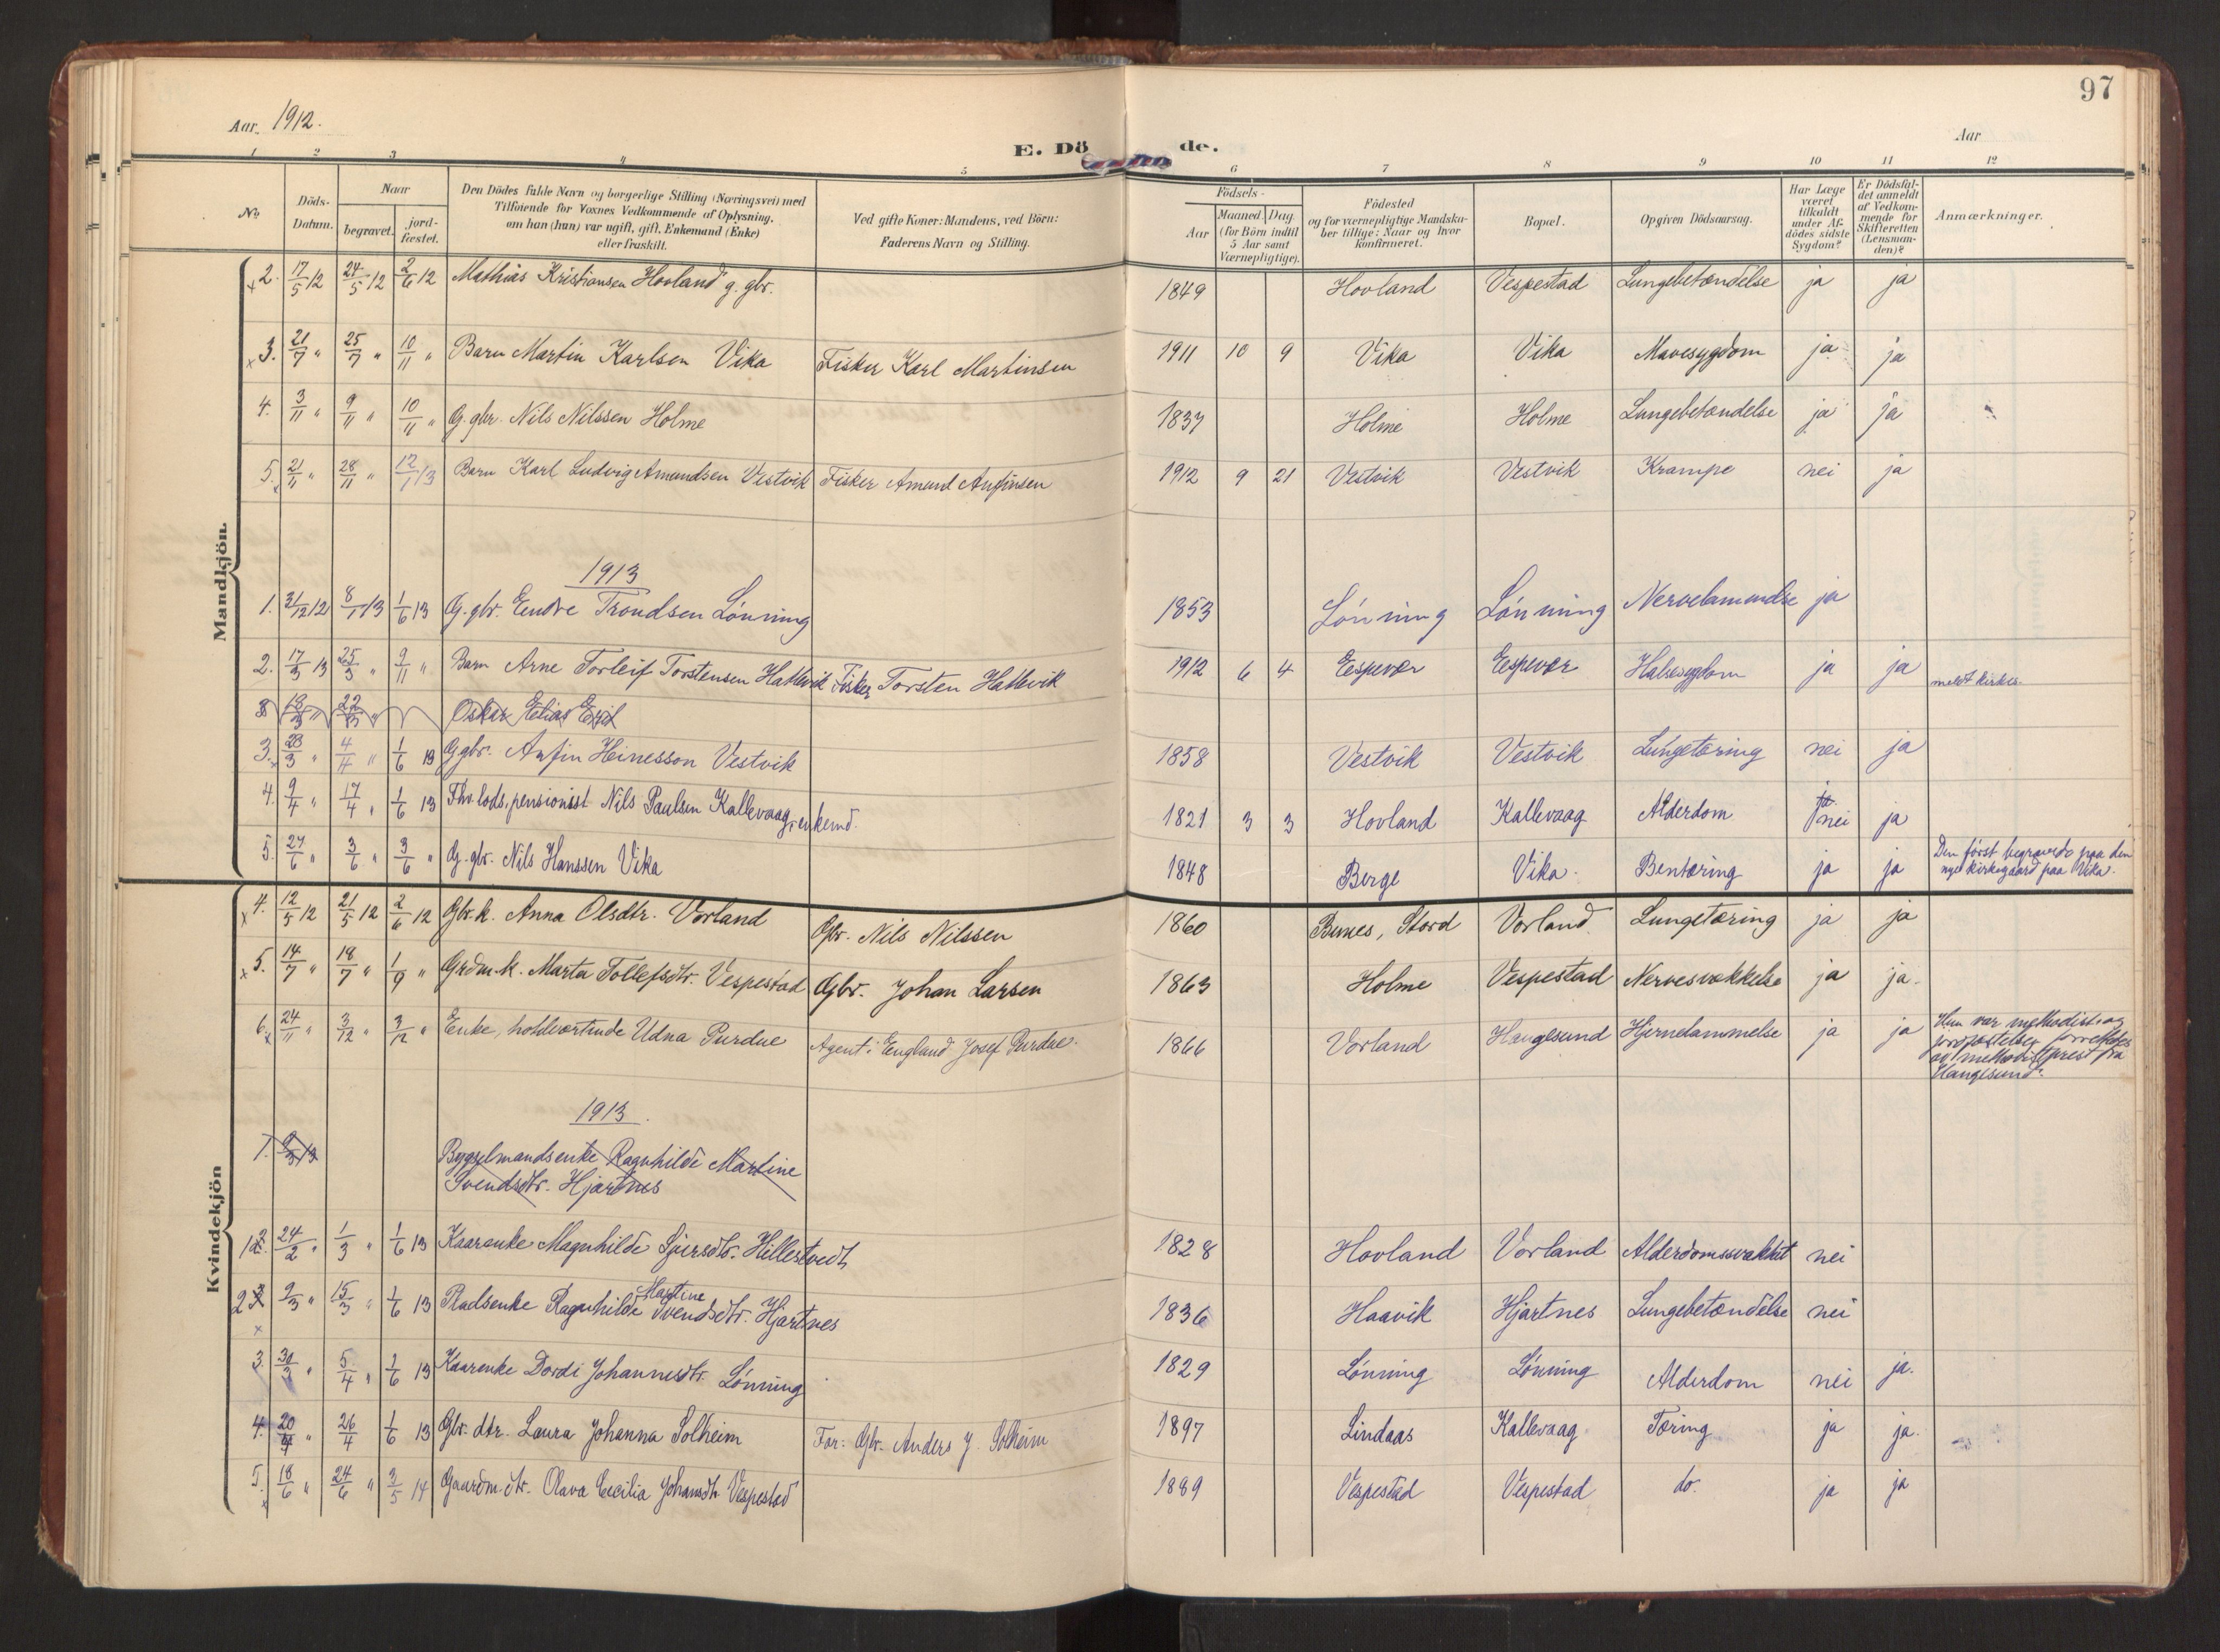 97
Aar 1912.
Aar
E. Dö de.
1 2 3 4 5 6 7 8 9 10 11 12
No
Döds-Datum.
Naar
begravet.
jord-fæstet.
Den Dödes fulde Navn og borgerlige Stilling (Næringsvei) med
Tilföiende for Voxnes Vedkommende af Oplysning,
om han (hun) var ugift, gift, Enkemand (Enke)
eller fraskilt.
Ved gifte Koner: Mandens, ved Börn:
Faderens Navn og Stilling.
Födsels-
Aar
Maaned. Dag
(for Börn indtil
5 Aar samt
Værnepligtige).
Födested
og for værnepligtige Mandska-
ber tillige: Naar og hvor
konfirmeret.
Bopæl.
Opgiven Dödsaarsag.
Har Læge
været
tilkaldt
under Af-
dödes sidste
Sygdom?
Er Dödsfal-
det anmeldt
af Vedkom-
mende for
Skifteretten
(Lensman-
den)?
Anmærkninger.
Mandkjön.
x 2. 17/5 12 24/5 12 2/6 12 Mathias Kristiansen Hovland g. gbr. 1849 Hovland Vespestad Lungebetændelse ja ja
x 3. 21/7 " 25/7 " 10/11 " Barn Martin Karlsen Vika Fisker Karl Martinsen 1911 10 9 Vika Vika Mavesygdom ja ja
4. 3/11 " 9/11 " 10/11 " G. gbr. Nils Nilssen Holme 1837 Holme Holme Lungebetændelse ja ja
5. x 21/11 " 28/11 " 12/1 13 Barn Karl Ludvig Amundsen Vestvik Fisker Amund Anfinsen 1912 9 21 Vestvik Vestvik Krampe nei ja
1913
1. 31/12 12 8/1 13 1/6 13 G. gbr. Endre Trondsen Lönning 1853 Lönning Lönning ja
2. 17/3 13 25/3 " 9/11 " Barn Arne Torleif Torstensen Hatlevik Fisker Torsten Hatlevik 1912 6 4 Espevær Espevær Halssygdom ja ja meldt kirkes.
Oskar Elias
3. x 28/3 " 4/4 " 1/6 13 G gbr. Anfin Heinesson Vestvik 1858 Vestvik Vestvik Lungetæring nei ja
4. 9/4 " 17/4 " 1/6 13 Fhv. lods, pensionist Nils Paulsen Kallevaag, enkemd. 1821 3 3 Hovland Kallevaag Alderdom nei ja
5. 27/6 " 3/6 " 3/6 " G. gbr. Nils Hanssen Vika 1848 Berge Vika. Bentæring ja ja Den först begravede paa den
nye kirkegaard paa Vika.
Kvindekjön
x 4. 12/5 12 21/5 12 2/6 12 Gbr.k. Anna Olsdtr. Vorland Gbr. Nils Nilssen 1860 Bunes, Stord Vorland Lungetæring ja ja
x 5. 14/7 " 18/7 " 1/9 " Grdm.k. Marta Tollefsdtr. Vespestad Gbr. Johan Larsen 1863 Holme Vespestad Nervesvækkelse ja ja.
6. x 24/11 " 3/12 " 3/12 " Enke, Udna Purdue Agent i England Josef Purdue. 1866 Vorland Haugesund Hjernelammelse ja ja Hun var methodist, og
jordfæstelsen forrettedes
av methodistprest fra
Haugesund.
1913.
1. 9/3 13 Bygselmandsenke Ragnhilde Martine
Svendsdtr. Hjartnes
1 24/2 " 1/3 " 1/6 13 Kaarenke Magnhilde Sjursdtr. Hillestvedt 1828 Hovland Vorland Alderdomssvækket nei
2 x 9/3 " 15/3 " 1/6 13 Pladsenke Ragnhilde Martine Svendsdtr. Hjartnes 1836 Haavik Hjartnes Lungebetændelse nei
3. 30/3 " 5/4 " 1/6 13 Kaarenke Dordi Johannesdtr. Lönning 1829 Lönning Lönning Alderdom nei ja.
4. 20/4 " 26/4 " 1/6 13 Gbr. dtr. Laura Johanna Solheim Far: Gbr. Anders J. Solheim 1897 Lindaas Kallevaag Tæring ja ja.
5. x 18/6 " 24/6 " 3/5 14 Gaardm.dtr. Olava Cecilia Johansdtr. Vespestad 1889 Vespestad Vespestad do. ja ja